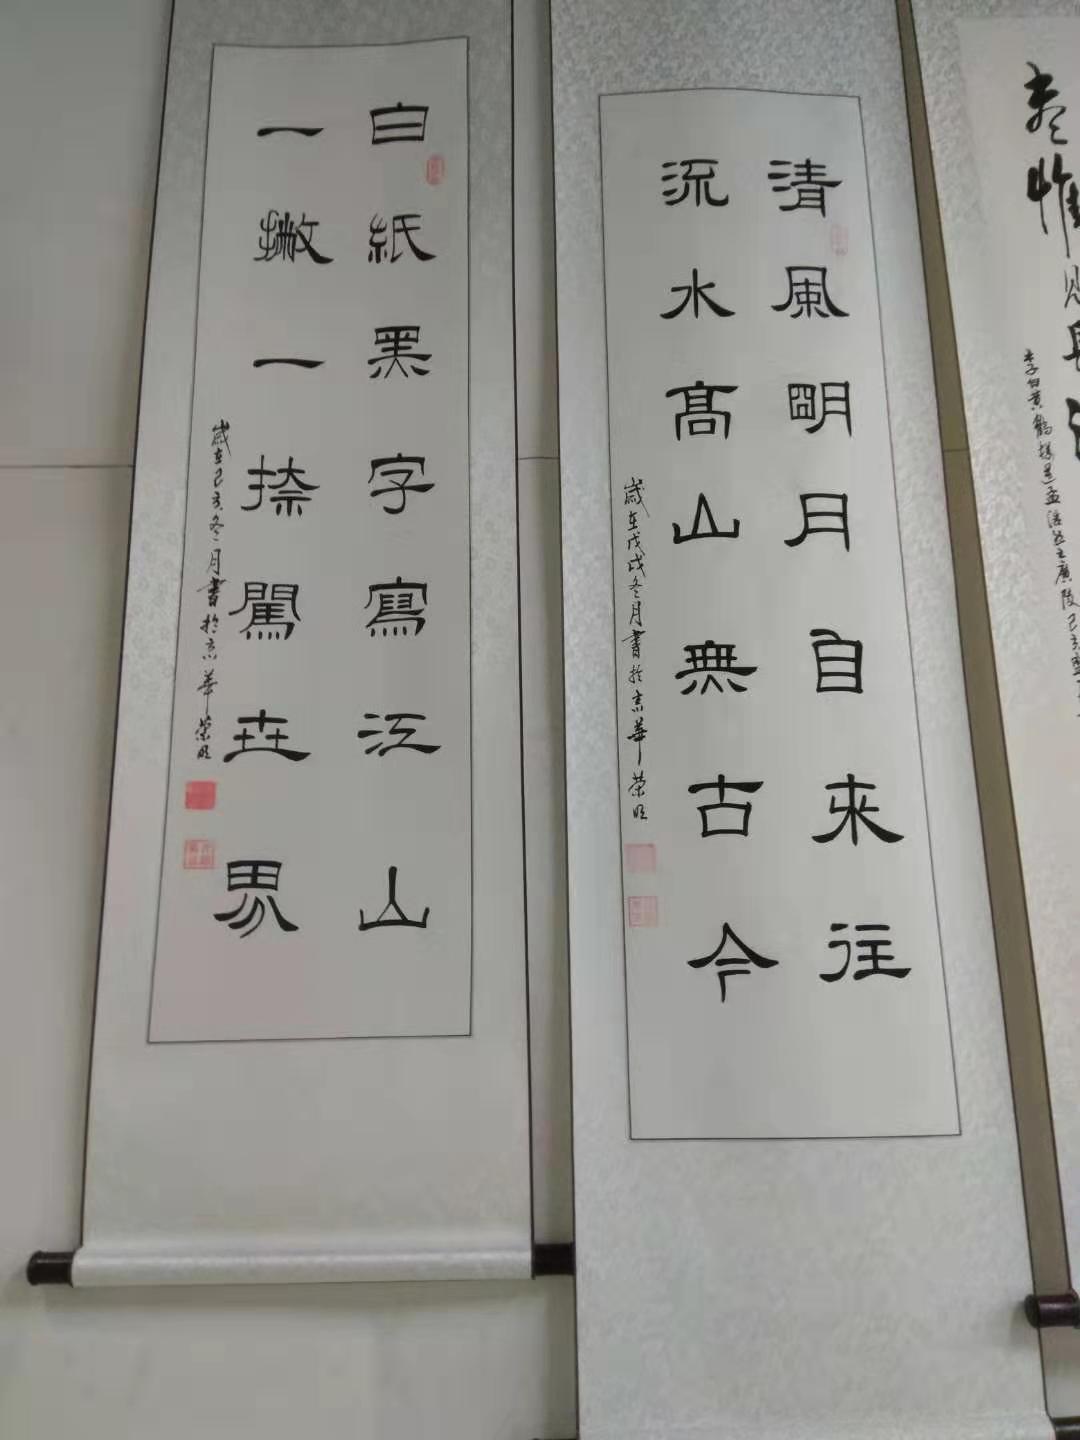 清風明月自来往
流水高山無古今
歲在戊戌冬月書於京華榮旺
白紙黑字寫江山
一撇一捺闖世界
歲在己亥冬月書於京華榮旺
李白黄鶴樓送孟浩然之廣陵己亥